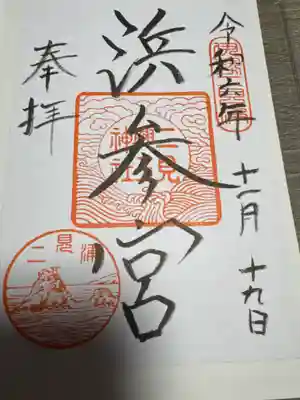 令和六年
十一月 十九日
浜参宮
二見
興玉
神社
奉拝
二見浦